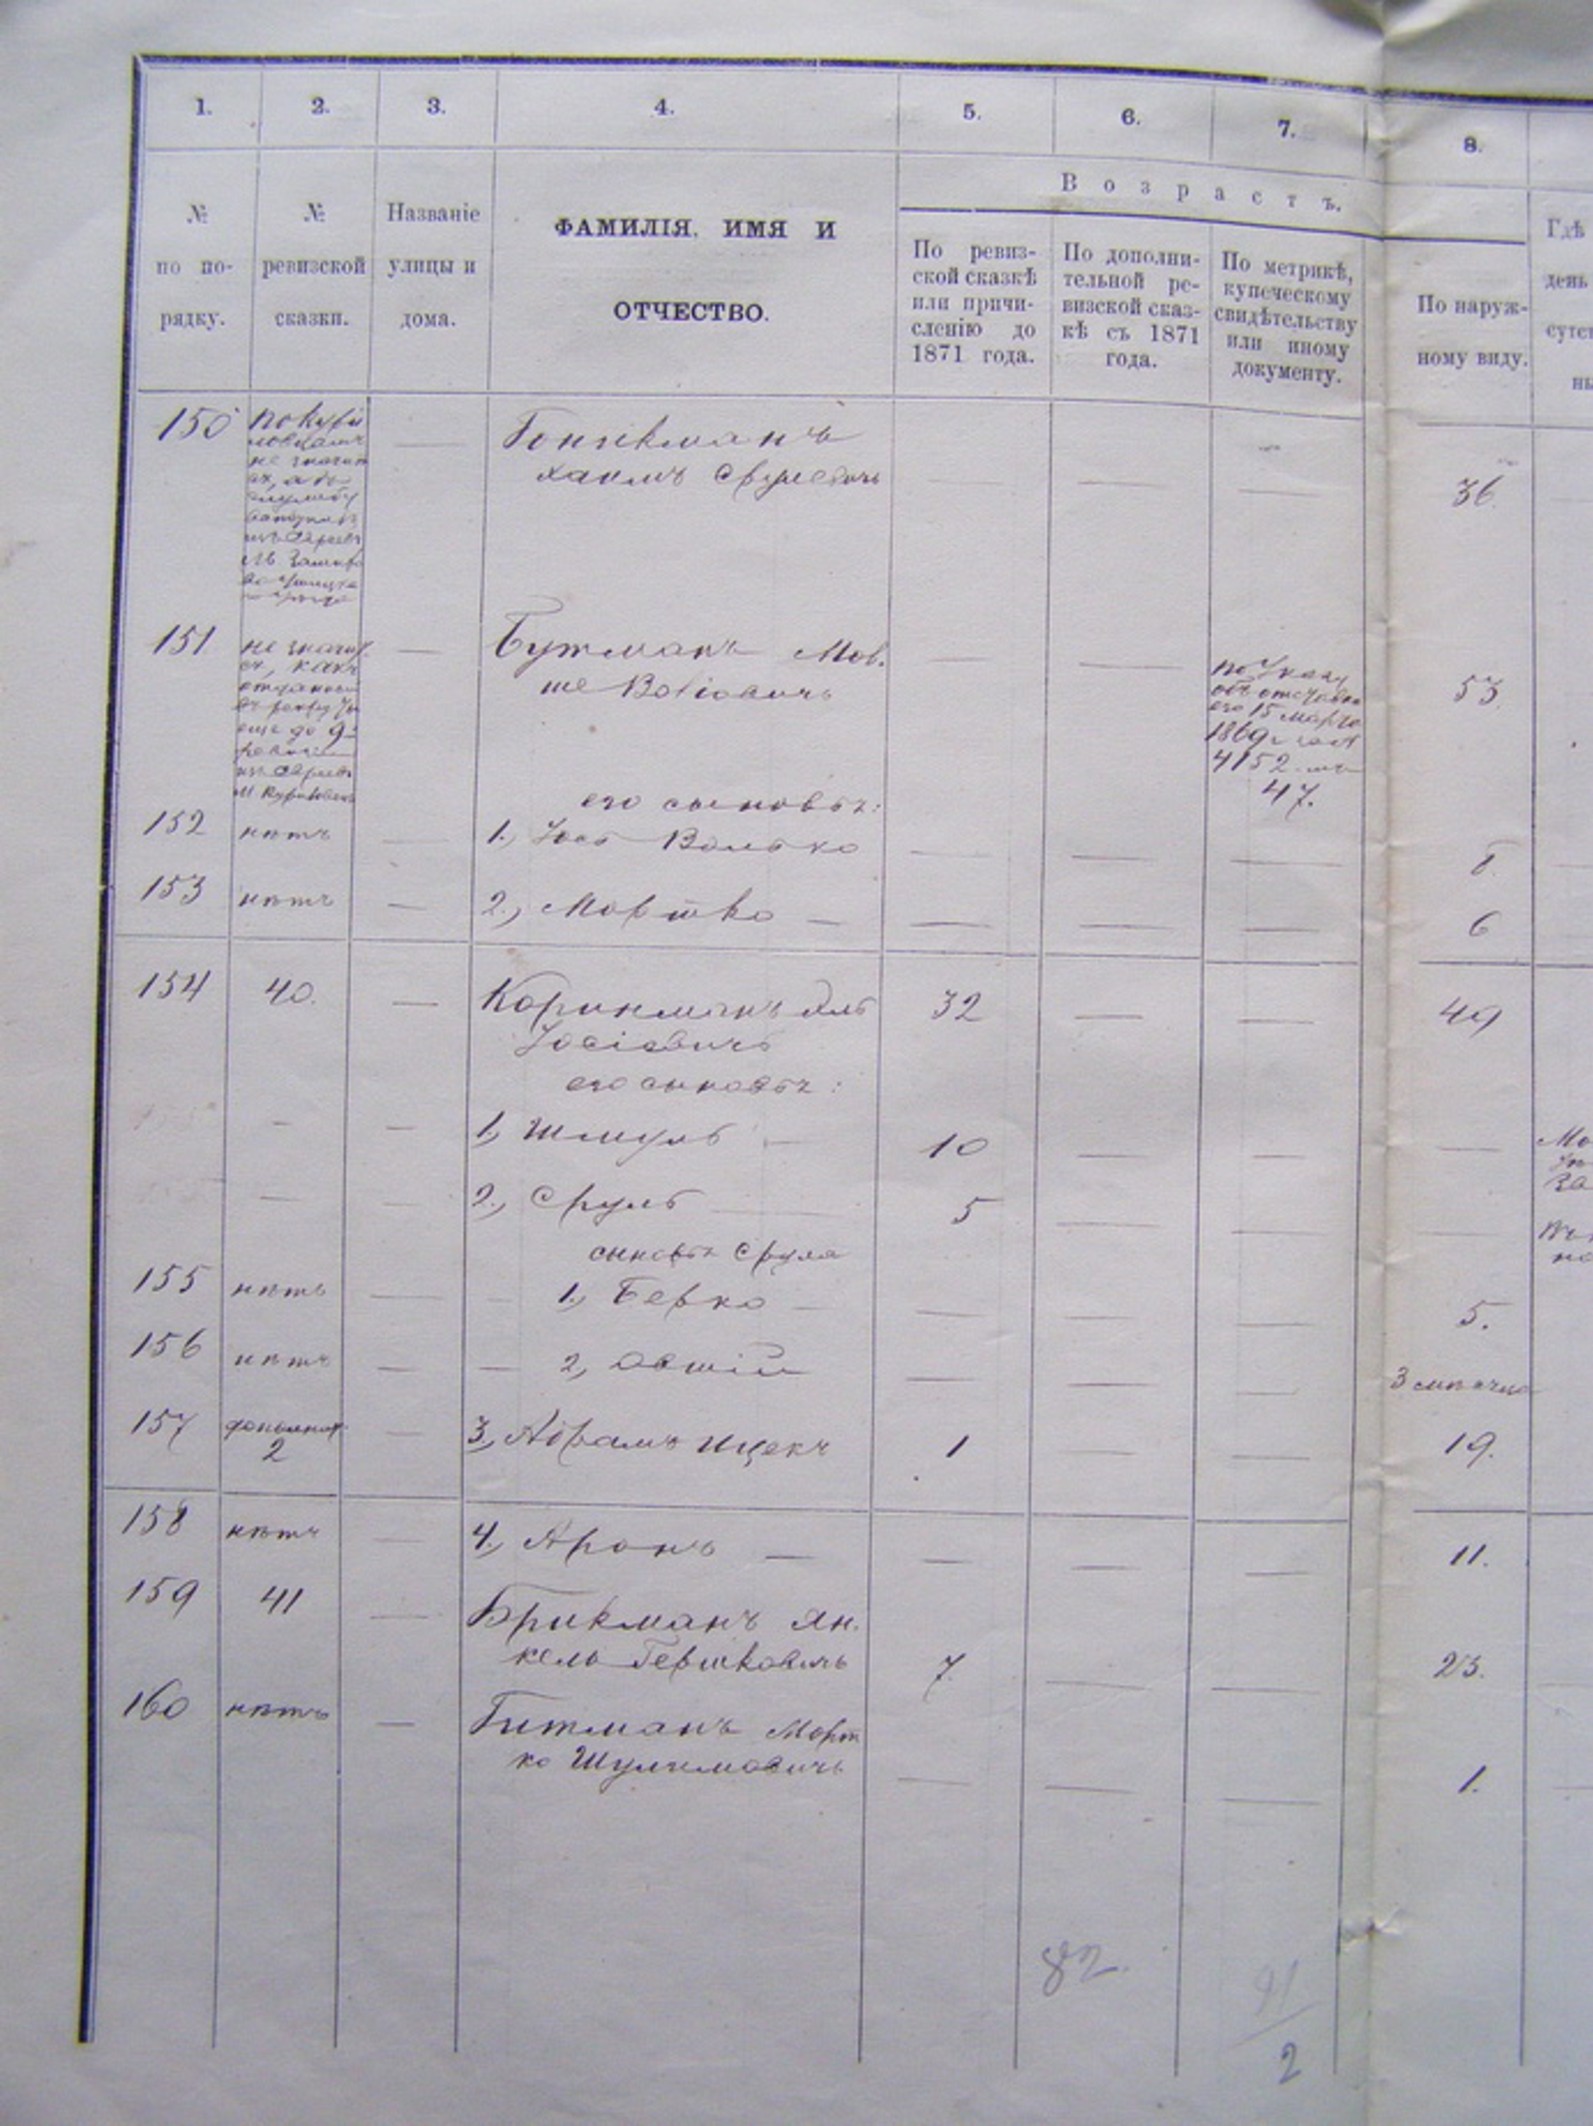 1. 2. 3. 4. 5. 6. 7. 8.
№ по порядку.
№ ревизской сказки.
Названіе улицы и дома.
ФАМИЛІЯ, ИМЯ И
ОТЧЕСТВО.
Возрастъ.
По ревиз-
ской сказкѣ
или причи-
сленію до
1871 года.
По дополни-
тельной ре-
визской сказ-
кѣ съ 1871
года.
По метрикѣ,
купеческому
свидѣтельству
или иному
документу.
По наруж-
ному виду.
Гдѣ
день
сутст
ны
150
не значит
ся, а въ
— Гоникманъ
Хаимъ Срулевичъ — — — 36
151
не значит
ся, какъ
еще до 9й
— Бутманъ Мов.
ше Вольовичъ — —
по Указу
объ отставке
его 15 марта
1869 г за №
4152 — 
47.
53
его сыновья:
152 нѣтъ — 1., Йось Волько — — — 8.
153 нѣтъ — 2., Мортко — — — — 6
154 40. — Коринманъ
Йосіовичъ 32 — — 49
его сыновья:
— — 1., Шмуль — 10 — — —
— — 2., Сруль — 5 — — —
сыновья Сруля
155 нѣтъ — — 1., Берко — — — — 5.
156 нѣтъ — — 2, Овшій — — — 3 мѣсяца
157 дополнит.
2 — 3., Абрамъ Ицекъ 1 — — 19.
158 нѣтъ — 4., Аронъ — — — — 11.
159 41 — Брикманъ Ян.
кель Гершковичъ 7. — — 23.
160 нѣтъ — Гитманъ Морт
ко Шулимовичъ — — — 1.
82.
2